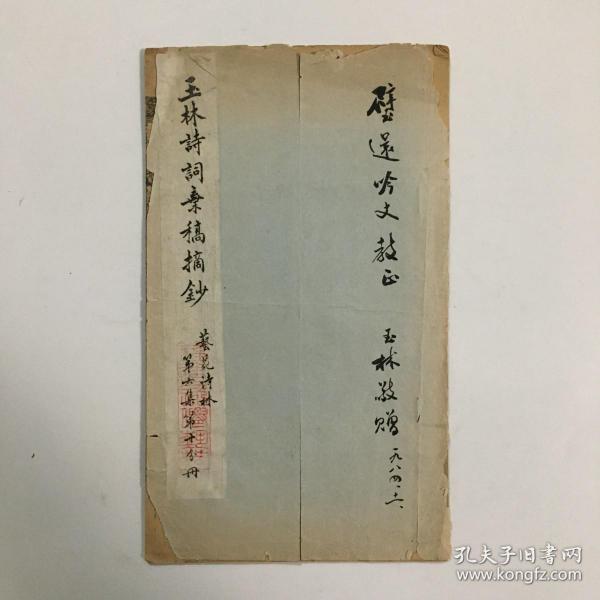 璧还吟丈教正
玉林敬赠
一九八四·十二·
玉林詩詞棄稿摘鈔
藝苑诗林
第六集第十分冊
孔夫子旧书网
www.kongfz.com